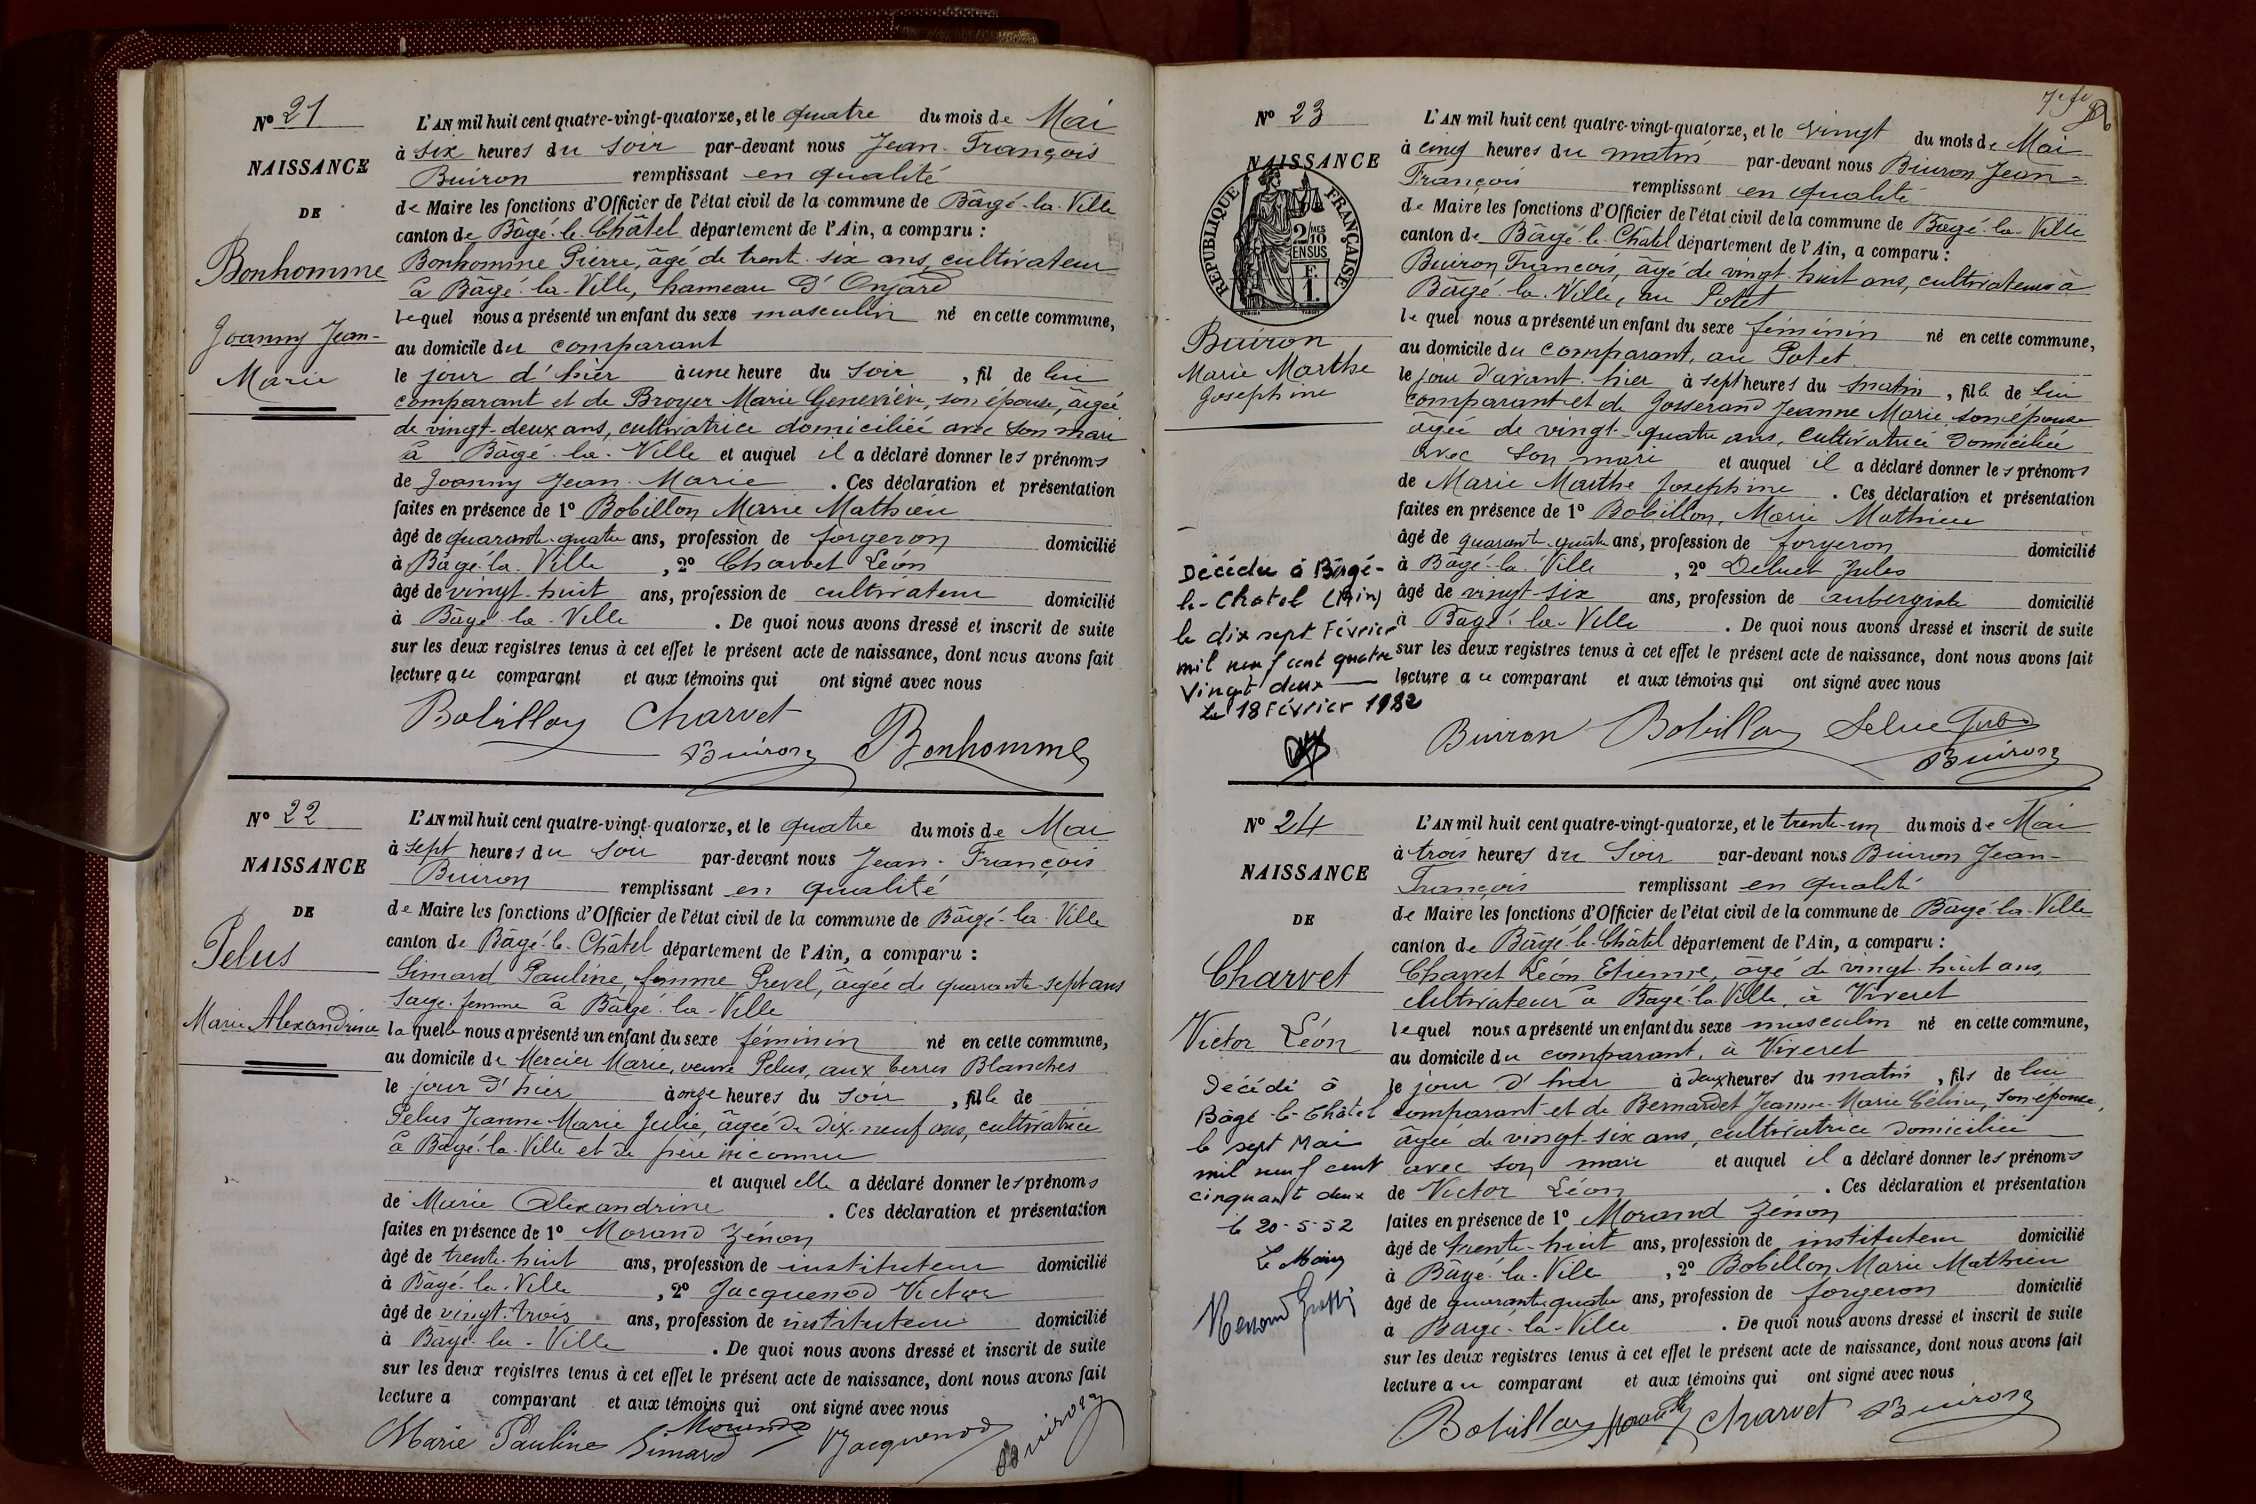 N° 21
NAISSANCE
DE
Bonhomme
Joanny Jean-
Marie
L'AN mil huit cent quatre-vingt-quatorze, et le quatre du mois de Mai
à six heures du soir par-devant nous Jean-François
Buiron remplissant en qualité
de Maire les fonctions d'Officier de l'état civil de la commune de Bâgé-la-Ville
canton de Bâgé-le-Châtel département de l'Ain, a comparu :
Bonhomme Pierre, âgé de trente-six ans, cultivateur
à Bâgé-la-Ville, hameau d'Onjard
lequel nous a présenté un enfant du sexe masculin né en cette commune,
au domicile du comparant
le jour d'hier à une heure du soir, fil de lui
comparant et de Broyer Marie Geneviève, son épouse, âgée
de vingt-deux ans, cultivatrice domiciliée avec son mari
à Bâgé-la-Ville et auquel il a déclaré donner les prénoms
de Joanny Jean-Marie. Ces déclaration et présentation
faites en présence de 1° Bobillon Marie Mathieu
âgé de quarante-quatre ans, profession de forgeron domicilié
à Bâgé-la-Ville, 2° Charvet Léon
âgé de vingt-huit ans, profession de cultivateur domicilié
à Bâgé-la-Ville. De quoi nous avons dressé et inscrit de suite
sur les deux registres tenus à cet effet le présent acte de naissance, dont nous avons fait
lecture au comparant et aux témoins qui ont signé avec nous
Bobillon Charvet
Buiron Bonhomme
N° 22
NAISSANCE
DE
Pelus
Marie Alexandrine
L'AN mil huit cent quatre-vingt-quatorze, et le quatre du mois de Mai
à sept heures du soir par-devant nous Jean-François
Buiron remplissant en qualité
de Maire les fonctions d'Officier de l'état civil de la commune de Bâgé-la-Ville
canton de Bâgé-le-Châtel département de l'Ain, a comparu :
Simard Pauline, femme Prevel, âgée de quarante-sept ans
sage-femme à Bâgé-la-Ville
laquelle nous a présenté un enfant du sexe féminin né en cette commune,
au domicile de Mercier Marie, veuve Pelus, aux Terres Blanches
le jour d'hier à onze heures du soir, fille de
Pelus Jeanne-Marie Julie, âgée de dix-neuf ans, cultivatrice
à Bâgé-la-Ville et de père inconnu
et auquel elle a déclaré donner les prénoms
de Marie Alexandrine. Ces déclaration et présentation
faites en présence de 1° Morand Zénon
âgé de trente-huit ans, profession de instituteur domicilié
à Bâgé-la-Ville, 2° Jacquenod Victor
âgé de vingt-trois ans, profession de instituteur domicilié
à Bâgé-la-Ville. De quoi nous avons dressé et inscrit de suite
sur les deux registres tenus à cet effet le présent acte de naissance, dont nous avons fait
lecture a comparant et aux témoins qui ont signé avec nous
Marie Pauline Simard Morand Jacquenod Buiron
N° 23
NAISSANCE
RÉPUBLIQUE FRANÇAISE
2/10 MES
EN SUS
F.
1.
Buiron
Marie Marthe
Josephine
Décédée à Bâgé-
le-Chatel (Ain)
le dix sept Février
mil neuf cent quatre
vingt deux
Le 18 Février 1982
L'AN mil huit cent quatre-vingt-quatorze, et le vingt du mois de Mai
à cinq heures du matin par-devant nous Buiron Jean-
François remplissant en qualité
de Maire les fonctions d'Officier de l'état civil de la commune de Bâgé-la-Ville
canton de Bâgé-le-Châtel département de l'Ain, a comparu :
Buiron François, âgé de vingt-huit ans, cultivateur à
Bâgé-la-Ville, au Potet
lequel nous a présenté un enfant du sexe féminin né en cette commune,
au domicile du comparant, au Potet
le jour d'avant-hier à sept heures du matin, fille de lui
comparant et de Josserand Jeanne Marie, son épouse
âgée de vingt-quatre ans, cultivatrice domiciliée
avec son mari et auquel il a déclaré donner les prénoms
de Marie Marthe Josephine. Ces déclaration et présentation
faites en présence de 1° Bobillon, Marie Mathieu
âgé de quarante-quatre ans, profession de forgeron domicilié
à Bâgé-la-Ville, 2° Deluet Jules
âgé de vingt-six ans, profession de aubergiste domicilié
à Bâgé-la-Ville. De quoi nous avons dressé et inscrit de suite
sur les deux registres tenus à cet effet le présent acte de naissance, dont nous avons fait
lecture au comparant et aux témoins qui ont signé avec nous
Buiron Bobillon
Buiron
N° 24
NAISSANCE
DE
Charvet
Victor Léon
Décédé à
Bâgé-le-Châtel
le sept Mai
mil neuf cent
cinquante deux
le 20-5-52
Le Maire
L'AN mil huit cent quatre-vingt-quatorze, et le trente-un du mois de Mai
à trois heures du soir par-devant nous Buiron Jean-
François remplissant en qualité
de Maire les fonctions d'Officier de l'état civil de la commune de Bâgé-la-Ville
canton de Bâgé-le-Châtel département de l'Ain, a comparu :
Charvet Léon Etienne, âgé de vingt-huit ans,
cultivateur à Bâgé-la-Ville, à Viveret
lequel nous a présenté un enfant du sexe masculin né en cette commune,
au domicile du comparant, à Viveret
le jour d'hier à deux heures du matin, fils de lui
comparant et de Bernardet Jeanne-Marie Céline, son épouse,
âgée de vingt-six ans, cultivatrice domiciliée
avec son mari et auquel il a déclaré donner les prénoms
de Victor Léon. Ces déclaration et présentation
faites en présence de 1° Morand Zénon
âgé de trente-huit ans, profession de instituteur domicilié
à Bâgé-la-Ville, 2° Bobillon Marie Mathieu
âgé de quarante-quatre ans, profession de forgeron domicilié
à Bâgé-la-Ville. De quoi nous avons dressé et inscrit de suite
sur les deux registres tenus à cet effet le présent acte de naissance, dont nous avons fait
lecture au comparant et aux témoins qui ont signé avec nous
Bobillon Morand Charvet Buiron